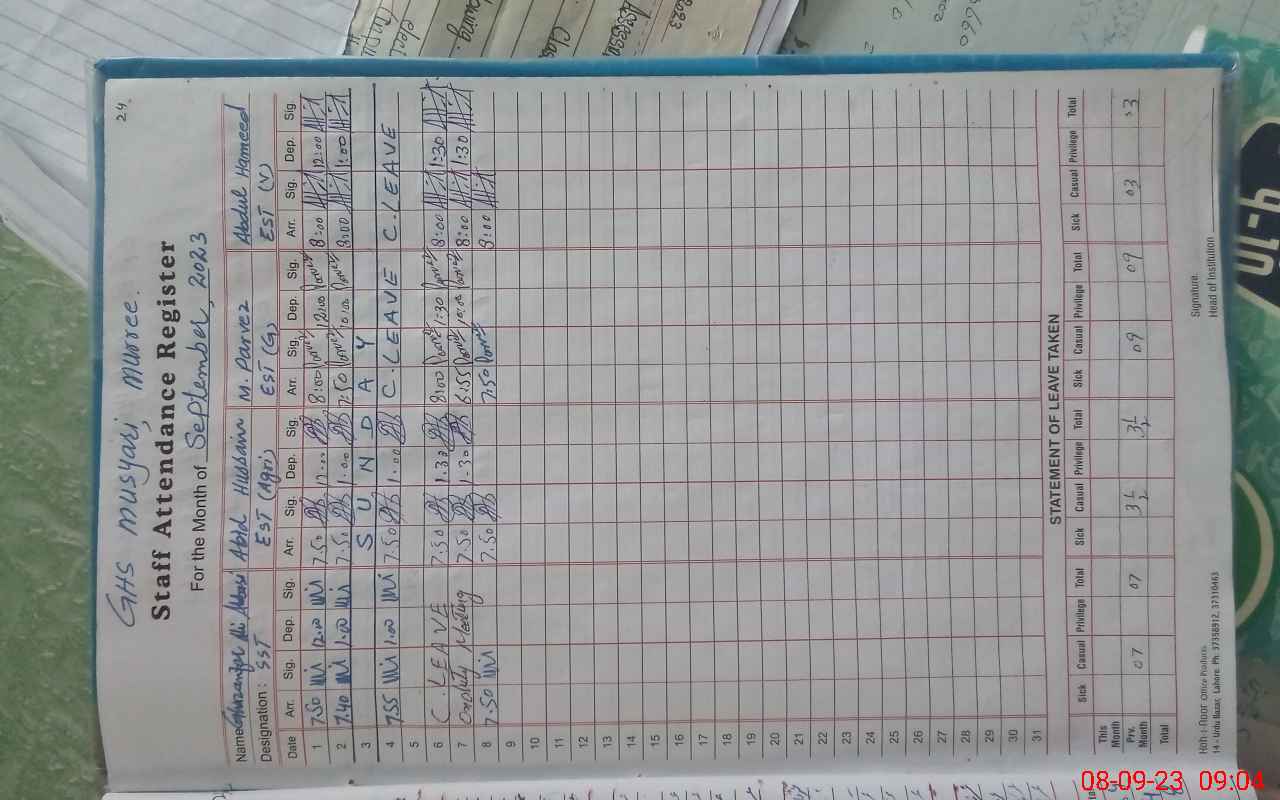 24.
GHS Musyari, Murree.
Staff Attendance Register
For the Month of September, 2023
Name Ghazanfar Ali Abbasi Abid Hussain M. Parvez Abdul Hameed
Designation: SST EST (Agri) EST (G) EST (V)
Date Arr. Sig. Dep. Sig. Arr. Sig. Dep. Sig. Arr. Sig. Dep. Sig. Arr. Sig. Dep. Sig.
1 7.50 12.00 7.50 12.00 8:00 12:00 8:00 12:00
2 7.40 1.00 7.50 1.00 7:50 10:00 8:00 1:00
3 S U N D A Y
4 7.55 1.00 7.50 1.00 C. LEAVE C. LEAVE
5
6 C. LEAVE 7.50 1.30 8:00 1:30 8:00 1:30
7 On duty Meeting 7.50 1.30 6:55 10:00 8:00 1:30
8 7.50 7.50 7:50 8:00
9
10
11
12
13
14
15
16
17
18
19
20
21
22
23
24
25
26
27
28
29
30
31
STATEMENT OF LEAVE TAKEN
Sick Casual Privilege Total Sick Casual Privilege Total Sick Casual Privilege Total Sick Casual Privilege Total
This Month
Prv. Month 07 07 3½ 3½ 09 09 03 03
Total
Signature
Head of Institution
Koh-i-Noor Office Products
14 - Urdu Bazar, Lahore. Ph: 37358912, 37310463
08-09-23 09:04